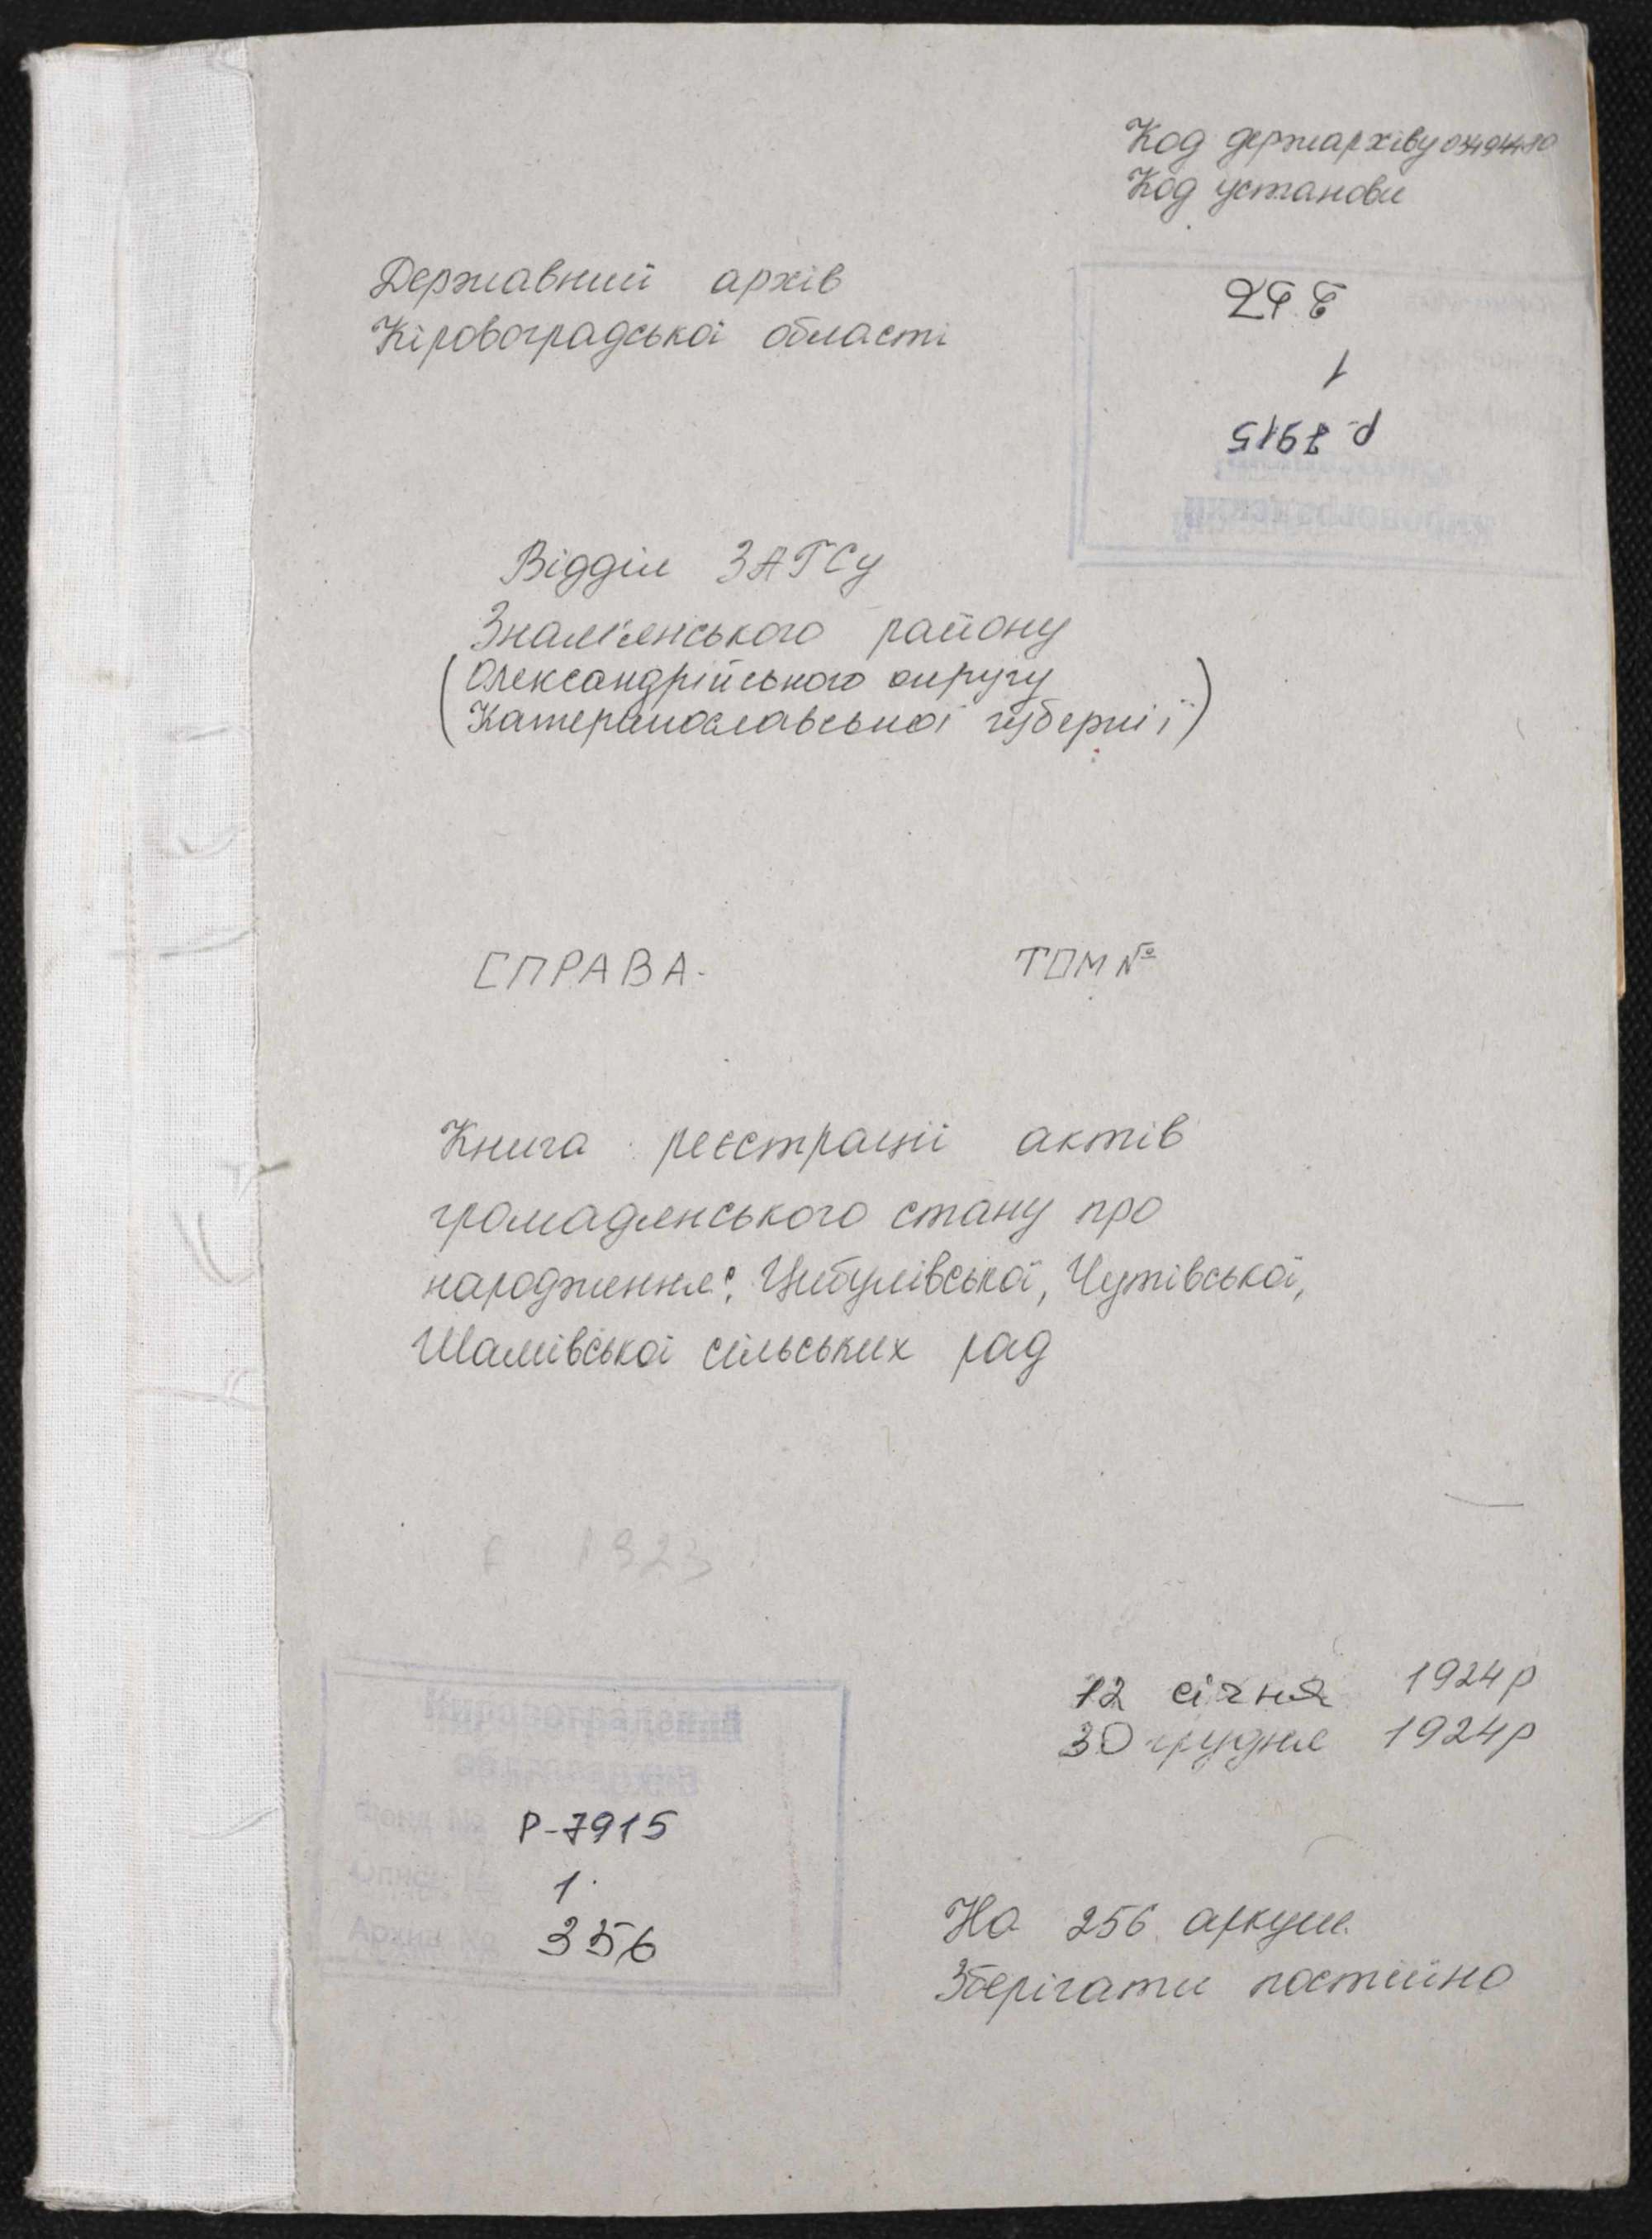 Код держархіву 03494480
Код установи
Державний архів
Кіровоградської області
1
р-7915
Відділ ЗАГСу
Знам'янського району
(Олександрійського округу
Катеринославської губернії)
СПРАВА-
ТОМ №
Книга реєстрації актів
громадянського стану про
народження: Цибулівської, Чутівської,
Шамівської сільських рад
1923
12 січня 1924р
30 грудня 1924р
Кировоградский
облгосархив
Фонд № Р-7915
Опись № 1
Архив № 356
На 256 аркуш.
Зберігати постійно